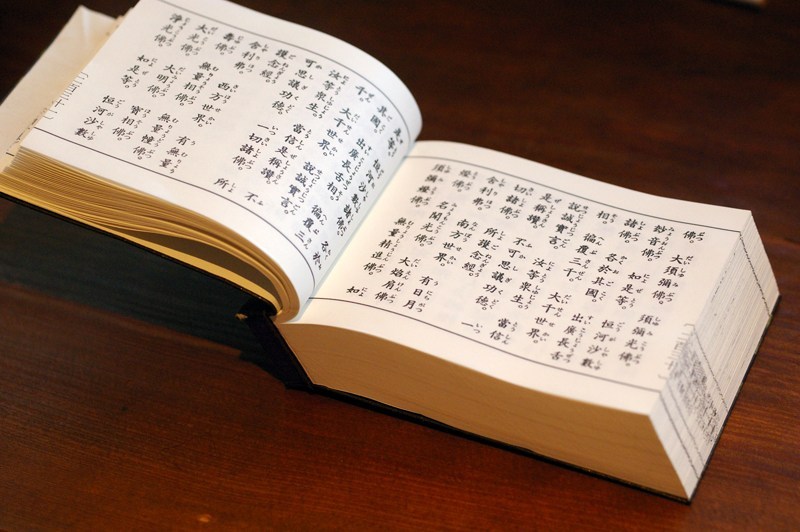 佛。 大須彌佛。 須彌光佛。
妙音佛。 如是等。 恒河沙數
諸佛。 各於其國。 出廣長舌
相。 徧覆三千。 大千世界。
說誠實言。 汝等衆生。 當信
是稱讚。 不可思議功德。 一
切諸佛。 所護念經。
舍利弗。 南方世界。 有日月
燈佛。 名聞光佛。 大焰肩佛。
須彌燈佛。 無量精進佛。 如
是等。 恒河沙數諸佛。 各於
其國。 出廣長舌相。 徧覆三
千。 大千世界。 說誠實言。
汝等衆生。 當信是稱讚。 不
可思議功德。 一切諸佛。 所
護念經。
舍利弗。 西方世界。 有無量
壽佛。 無量相佛。 無量幢佛。
大光佛。 大明佛。 寶相佛。
淨光佛。 如是等。 恒河沙數
二百三十